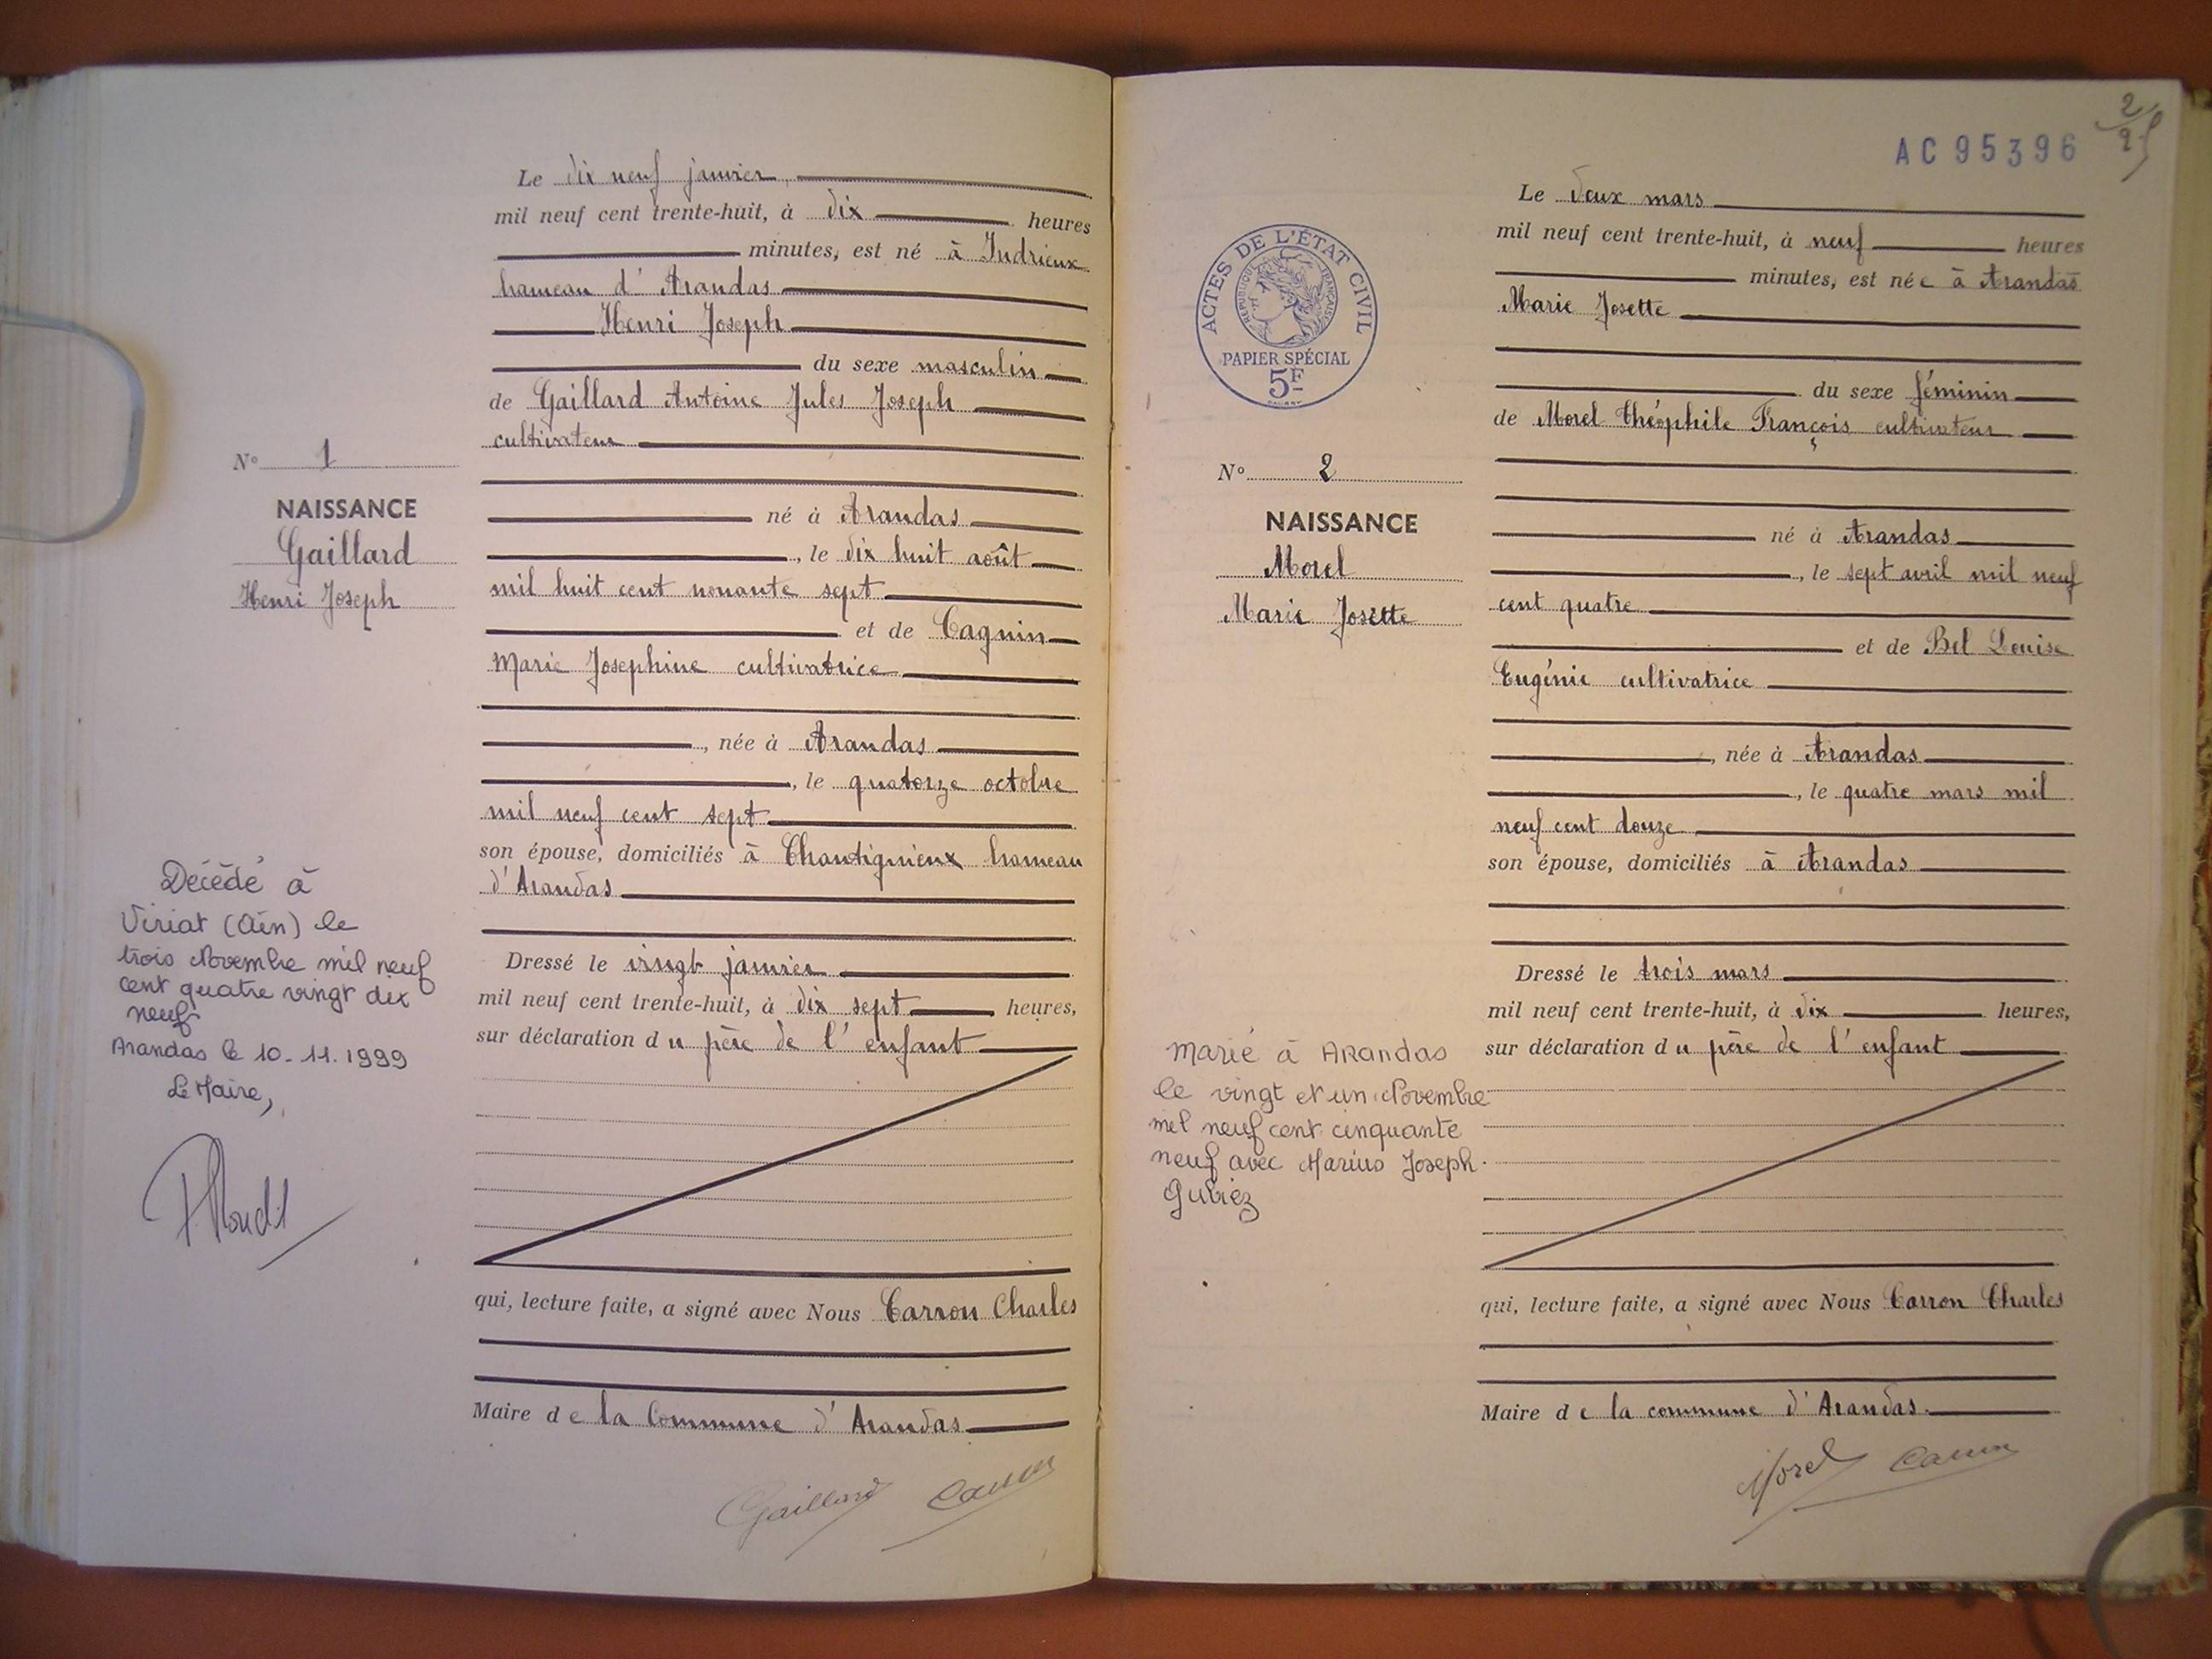 Le dix neuf janvier
mil neuf cent trente-huit, à dix heures
minutes, est né à Indrieux
hameau d'Arandas
Henri Joseph
du sexe masculin
de Gaillard Antoine Jules Joseph
cultivateur
né à Arandas
, le dix huit août
mil huit cent nonante sept
et de Cagnin
Marie Josephine cultivatrice
, née à Arandas
, le quatorze octobre
mil neuf cent sept
son épouse, domiciliés à Chantignieux hameau
d'Arandas
Dressé le vingt janvier
mil neuf cent trente-huit, à dix sept heures,
sur déclaration du père de l'enfant
qui, lecture faite, a signé avec Nous Carron Charles
Maire de la Commune d'Arandas
Gaillard
N° 1
NAISSANCE
Gaillard
Henri Joseph
Décédé à
Viriat (Ain) le
trois Novembre mil neuf
cent quatre vingt dix
neuf
Arandas le 10-11.1999
Le Maire,
AC 95396
ACTES DE L'ÉTAT CIVIL
RÉPUBLIQUE FRANÇAISE
PAPIER SPÉCIAL
5F
Le deux mars
mil neuf cent trente-huit, à neuf heures
minutes, est née à Arandas
Marie Josette
du sexe féminin
de Morel Théophile François cultivateur
né à Arandas
, le sept avril mil neuf
cent quatre
et de Bel Louise
Eugénie cultivatrice
, née à Arandas
, le quatre mars mil
neuf cent douze
son épouse, domiciliés à Arandas
Dressé le trois mars
mil neuf cent trente-huit, à dix heures,
sur déclaration du père de l'enfant
qui, lecture faite, a signé avec Nous Carron Charles
Maire de la commune d'Arandas
Morel
N° 2
NAISSANCE
Morel
Marie Josette
Marié à Arandas
le vingt et un Novembre
mil neuf cent cinquante
neuf avec Marius Joseph